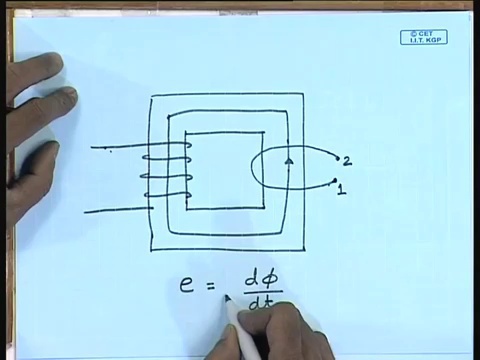 © CET
I.I.T. KGP
2
1
e = dφ/dt